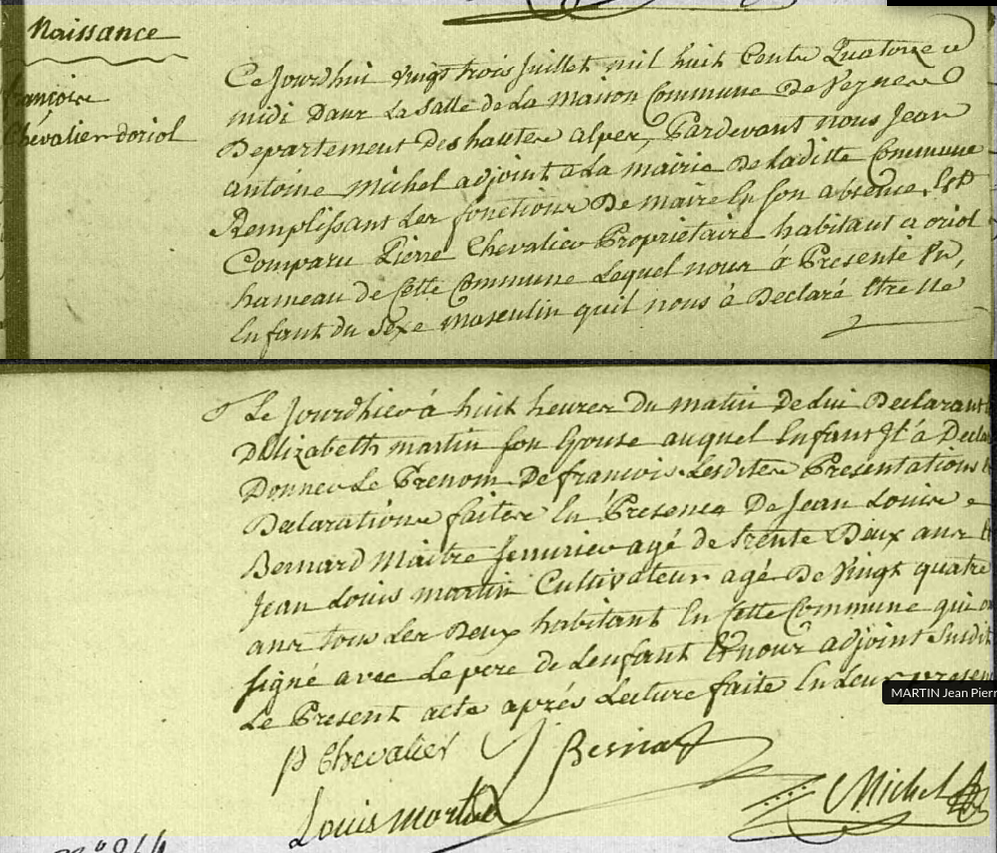 Naissance
françois
Chevalier doriol
Ce Jourdhui vingt trois Juillet mil huit Cents Quatorze a
midi Dans La Salle de La maison Commune De Veynes
Departement Des hautes alpes, Pardevant nous Jean
antoine Michel adjoint a La mairie De Laditte Commune
Remplissant Les fonctions De maire En Son absence, Est
Comparu Pierre Chevalier Proprietaire habitant a oriol
hameau de Cette Commune Lequel nous à Presenté Un
Enfant du Sexe masculin quil nous à Declaré Etre né
Le Jourdhier à huit heures Du matin De lui Declarant
DElizabeth martin Son Epouse auquel Enfant Il à
Donner Le Prenom De francois Lesdites Presentations
Declarations faites En Presence De Jean Louis
Bernard Maitre Serrurier agé de trente Deux ans
Jean Louis martin Cultivateur agé De Vingt quatre
ans tous Les Deux habitant En Cette Commune qui
signé avec Le pere de Lenfant Et nous adjoint Susdit
Le Present acte aprés Lecture faite En Leur
MARTIN Jean Pierr
P Chevalier J Bernard
Louis martin Michel